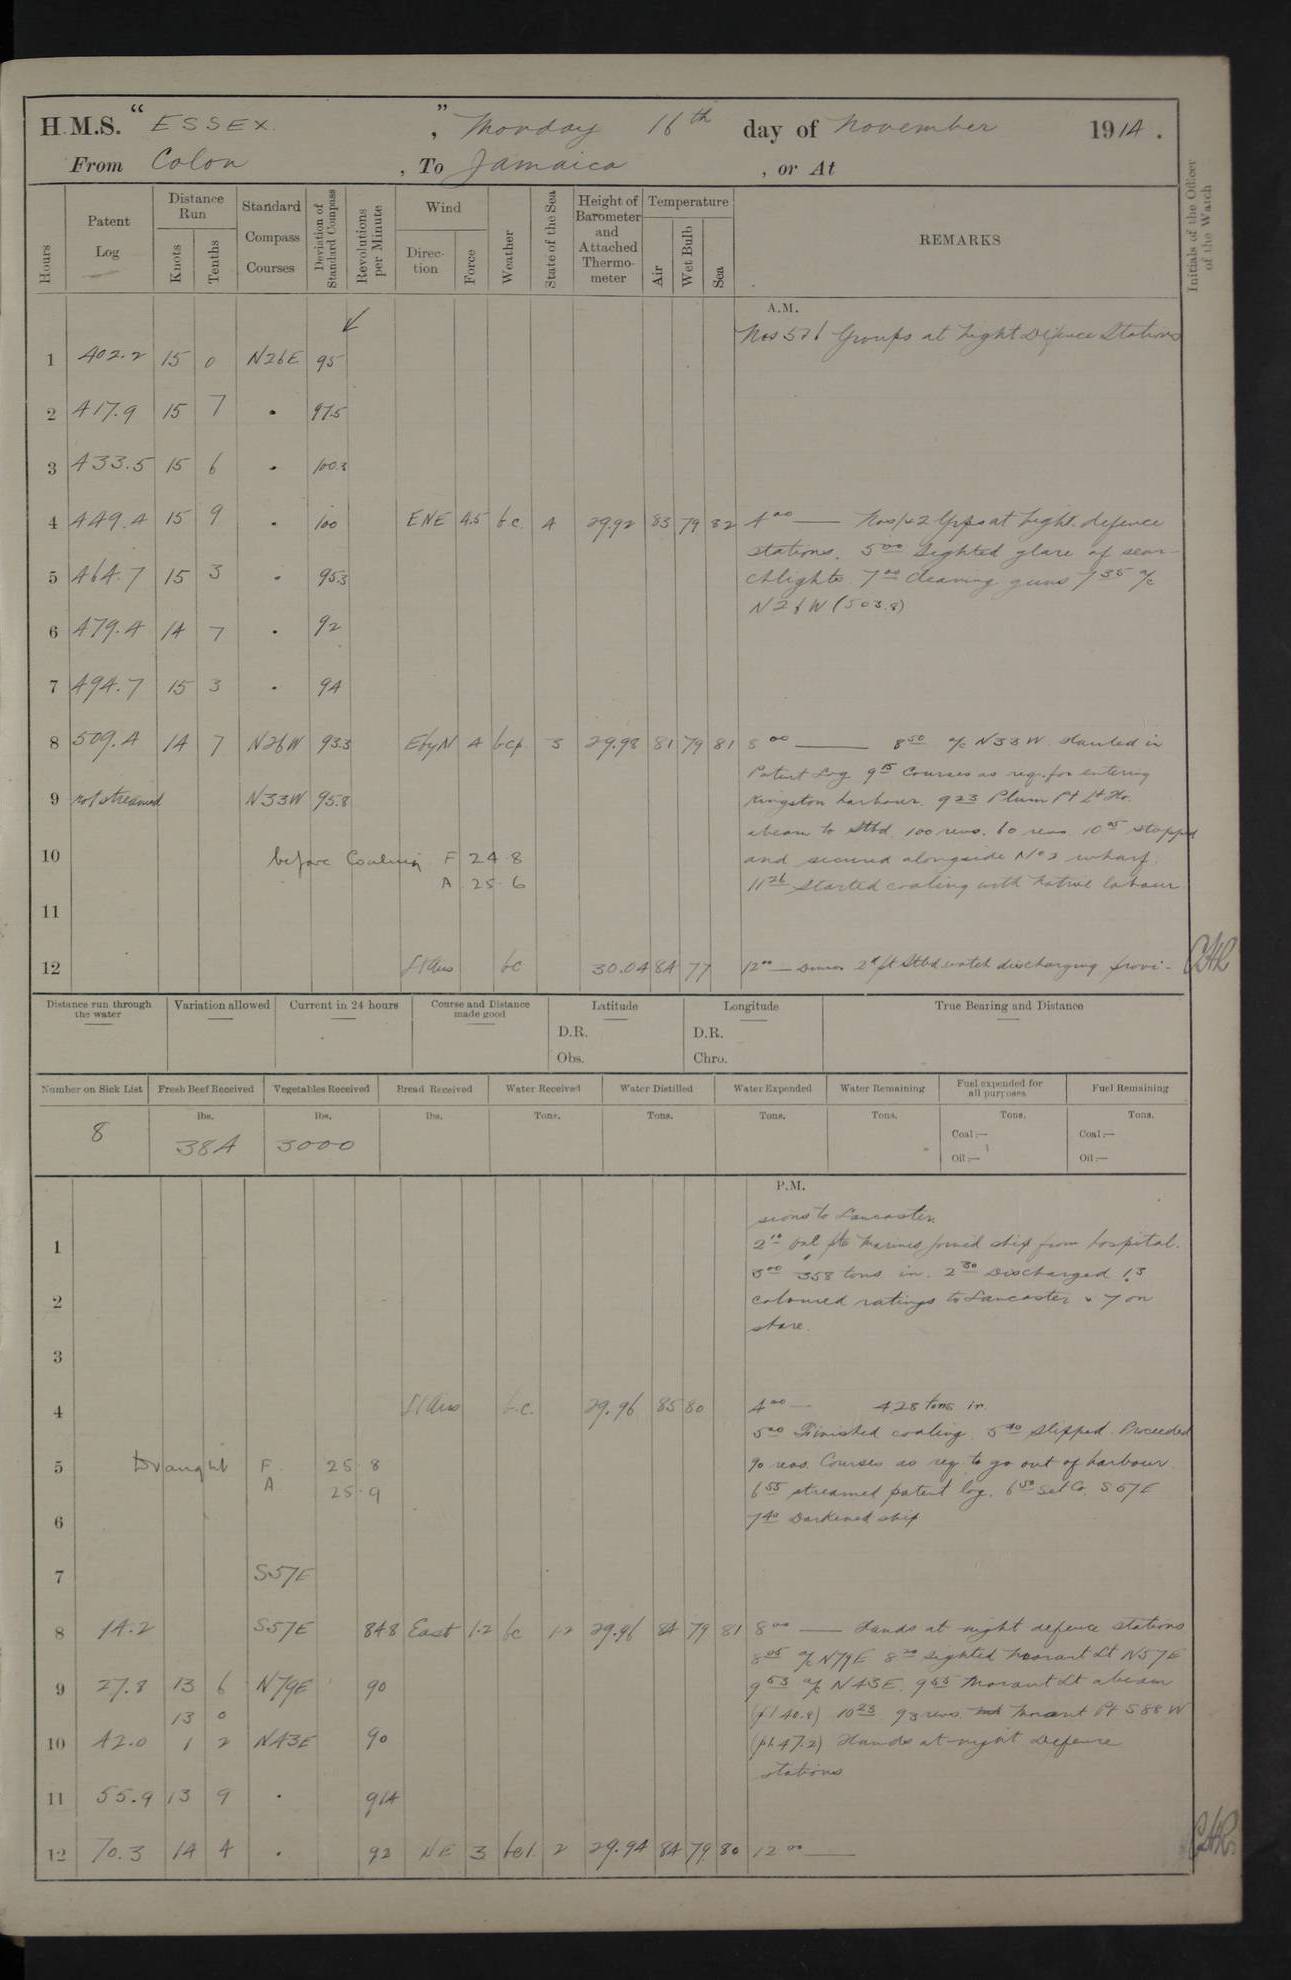 H.M.S. “ESSEX.”, Monday 16th day of November 1914.
From Colon, To Jamaica, or At
Hours
Patent Log
Distance Run
Knots
Tenths
Standard Compass Courses
Deviation of Standard Compass
Revolutions per Minute
Wind
Direction
Force
Weather
State of the Sea
Height of Barometer and Attached Thermometer
Temperature
Air
Wet Bulb
Sea
REMARKS
Initials of the Officer of the Watch
A.M.
Nos 5 & 6 Groups at Night Defence Stations
1 402.2 15 0 N26E 95
2 417.9 15 7 • 97.5
3 433.5 15 6 • 100.3
4 449.4 15 9 • 100 ENE 4.5 bc 4 29.92 83 79 82 4 00 — Nos 1 & 2 Grps at Night defence
stations. 5 00 Sighted glare of sear-
5 464.7 15 3 • 95.3 chlights 7 00 Cleaning guns 7 35 a/c
N26W (503.8)
6 479.4 14 7 • 92
7 494.7 15 3 • 94
8 509.4 14 7 N26W 93.3 EbyN 4 bcp 3 29.98 81 79 81 8 00 — 8 50 a/c N33W. Hauled in
Patent Log 9 15 Courses as req. for entering
9 not streamed N33W 95.8 Kingston harbour. 9 23 Plum Pt Lt Ho.
abeam to Stbd. 100 revs. 60 revs 10 05 stopped
10 before Coaling F 24 8 and secured alongside No 2 wharf.
A 25 6 11 26 Started coaling with Native labour
11
12 Lt Airs bc 30.04 84 77 12 00 — 2d pt Stbd watch discharging provi-
Distance run through the water
Variation allowed
Current in 24 hours
Course and Distance made good
Latitude
D.R.
Obs.
Longitude
D.R.
Chro.
True Bearing and Distance
Number on Sick List
Fresh Beef Received
Vegetables Received
Bread Received
Water Received
Water Distilled
Water Expended
Water Remaining
Fuel expended for all purposes
Fuel Remaining
lbs. lbs. lbs. Tons. Tons. Tons. Tons. Tons. Tons.
8 384 3000
Coal :— Coal :—
Oil :— Oil :—
P.M.
sions to Lancaster.
1 2 10 One pte Marines joined ship from hospital.
3 00 358 tons in. 2 30 Discharged 13
2 coloured ratings to Lancaster & 7 on
shore.
3
4 Lt Airs b.c. 29.96 85 80 4 00 — 428 tons in
5 00 Finished coaling. 5 40 Slipped. Proceeded
5 Draught F 25 8 90 revs. Courses as req to go out of harbour
A 25 9 6 55 streamed patent log. 6 50 Set Co. S57E
6 7 40 Darkened ship
7 S57E
8 14.2 S57E 84.8 East 1.2 bc 1.2 29.96 84 79 81 8 00 — Hands at night defence stations
8 05 a/c N79E 8 20 Sighted Morant Lt N57E
9 27.8 13 6 N79E 90 9 53 a/c N43E. 9 55 Morant Lt abeam
13 0 (pl 40.8) 10 23 93 revs. Morant Pt S88W
10 42.0 1 2 N43E 90 (pl. 47.2) Hands at night Defence
stations
11 55.9 13 9 • 91.4
12 70.3 14 4 • 92 NE 3 bcl 2 29.94 84 79 80 12 00 —